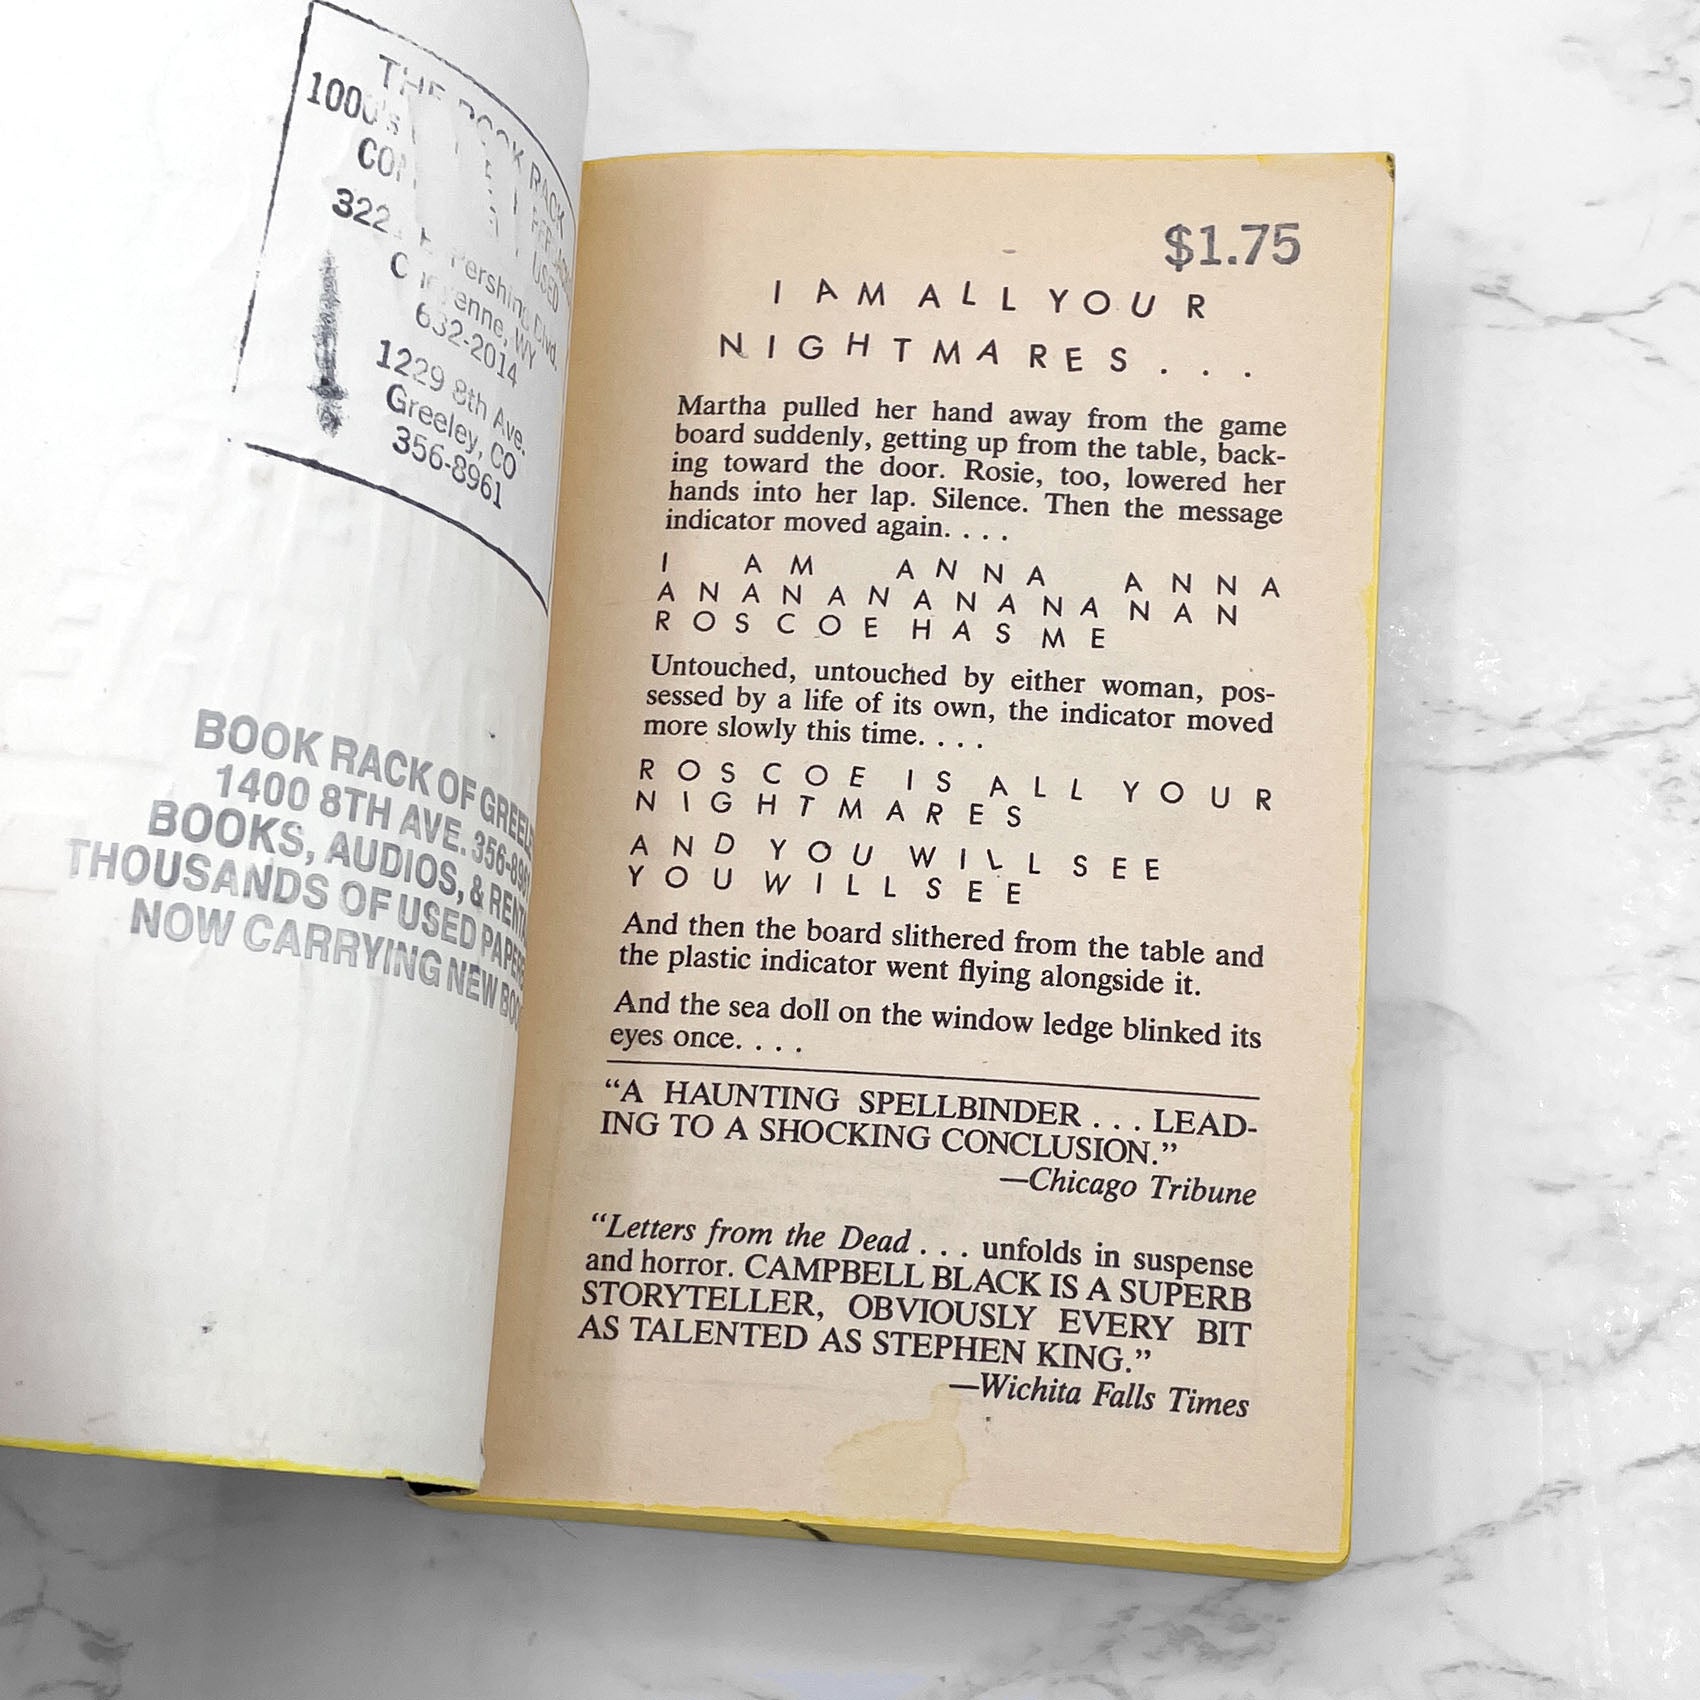 THE BOOK RACK
1000's
USED
322 Pershing Blvd.
Cheyenne, WY
632-2014
1229 8th Ave.
Greeley, CO
356-8961
BOOK RACK OF GREELE
1400 8TH AVE. 356-896
BOOKS, AUDIOS, & RENT
THOUSANDS OF USED PAPER
NOW CARRYING NEW BOO
$1.75
I AM ALL YOUR
NIGHTMARES . . .
Martha pulled her hand away from the game
board suddenly, getting up from the table, back-
ing toward the door. Rosie, too, lowered her
hands into her lap. Silence. Then the message
indicator moved again. . . .
I AM ANNA ANNA
ANANANANANANAN
ROSCOE HAS ME
Untouched, untouched by either woman, pos-
sessed by a life of its own, the indicator moved
more slowly this time. . . .
ROSCOE IS ALL YOUR
NIGHTMARES
AND YOU WILL SEE
YOU WILL SEE
And then the board slithered from the table and
the plastic indicator went flying alongside it.
And the sea doll on the window ledge blinked its
eyes once. . . .
“A HAUNTING SPELLBINDER . . . LEAD-
ING TO A SHOCKING CONCLUSION.”
—Chicago Tribune
“Letters from the Dead . . . unfolds in suspense
and horror. CAMPBELL BLACK IS A SUPERB
STORYTELLER, OBVIOUSLY EVERY BIT
AS TALENTED AS STEPHEN KING.”
—Wichita Falls Times